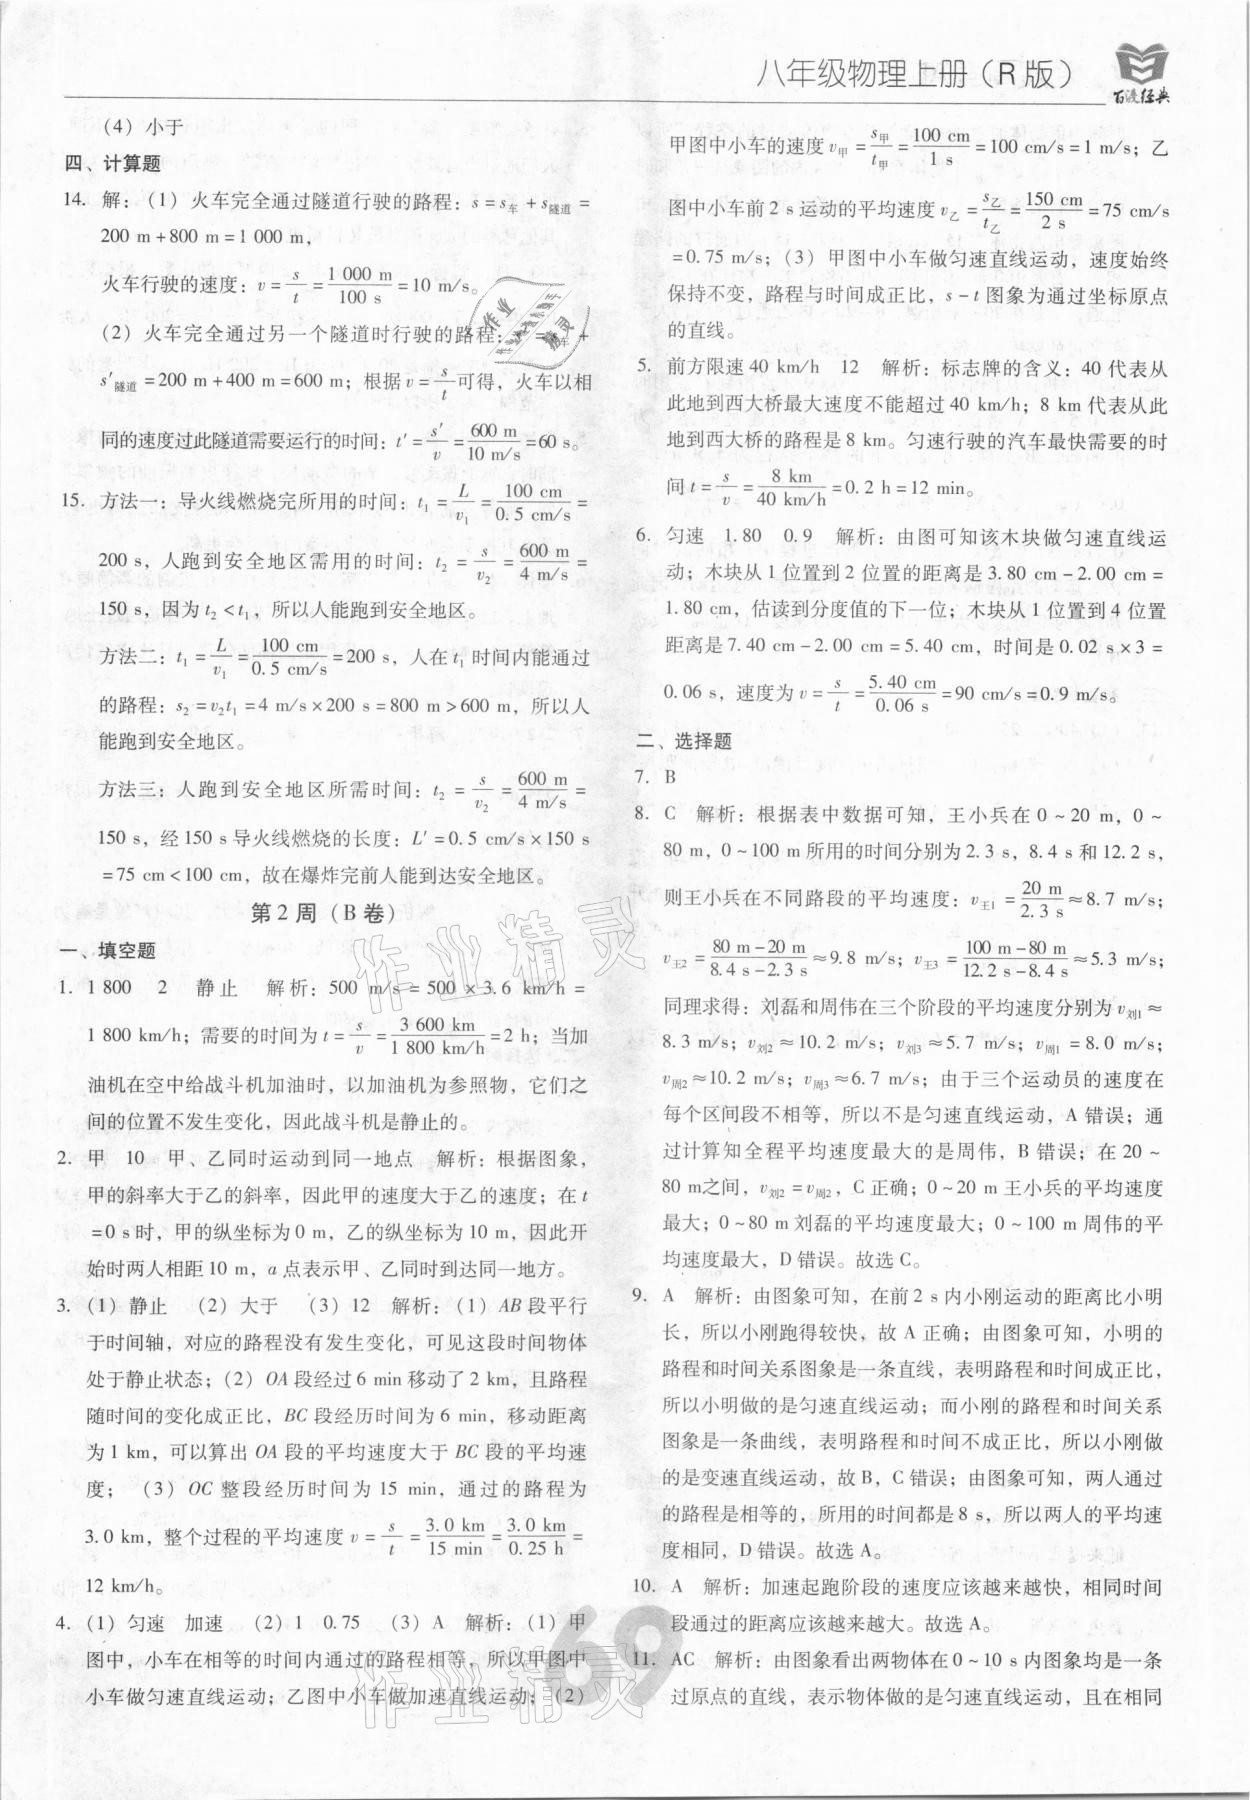 八年级物理上册（R版）
百渡经典
（4）小于
四、计算题
14. 解：（1）火车完全通过隧道行驶的路程：s=s车+s隧道=
200 m+800 m=1 000 m，
火车行驶的速度：v=s/t=1 000 m/100 s=10 m/s。
（2）火车完全通过另一个隧道时行驶的路程：
s′隧道=200 m+400 m=600 m；根据v=s/t可得，火车以相
同的速度过此隧道需要运行的时间：t′=s′/v=600 m/10 m/s=60 s。
15. 方法一：导火线燃烧完所用的时间：t₁=L/v₁=100 cm/0.5 cm/s=
200 s，人跑到安全地区需用的时间：t₂=s/v₂=600 m/4 m/s=
150 s，因为t₂<t₁，所以人能跑到安全地区。
方法二：t₁=L/v₁=100 cm/0.5 cm/s=200 s，人在t₁时间内能通过
的路程：s₂=v₂t₁=4 m/s×200 s=800 m>600 m，所以人
能跑到安全地区。
方法三：人跑到安全地区所需时间：t₂=s/v₂=600 m/4 m/s=
150 s，经150 s导火线燃烧的长度：L′=0.5 cm/s×150 s
=75 cm<100 cm，故在爆炸完前人能到达安全地区。
第2周（B卷）
一、填空题
1. 1 800 2 静止 解析：500 m/s=500×3.6 km/h=
1 800 km/h；需要的时间为t=s/v=3 600 km/1 800 km/h=2 h；当加
油机在空中给战斗机加油时，以加油机为参照物，它们之
间的位置不发生变化，因此战斗机是静止的。
2. 甲 10 甲、乙同时运动到同一地点 解析：根据图象，
甲的斜率大于乙的斜率，因此甲的速度大于乙的速度；在t
=0 s时，甲的纵坐标为0 m，乙的纵坐标为10 m，因此开
始时两人相距10 m，a点表示甲、乙同时到达同一地方。
3. （1）静止 （2）大于 （3）12 解析：（1）AB段平行
于时间轴，对应的路程没有发生变化，可见这段时间物体
处于静止状态；（2）OA段经过6 min移动了2 km，且路程
随时间的变化成正比，BC段经历时间为6 min，移动距离
为1 km，可以算出OA段的平均速度大于BC段的平均速
度；（3）OC整段经历时间为15 min，通过的路程为
3.0 km，整个过程的平均速度v=s/t=3.0 km/15 min=3.0 km/0.25 h=
12 km/h。
4. （1）匀速 加速 （2）1 0.75 （3）A 解析：（1）甲
图中，小车在相等的时间内通过的路程相等，所以甲图中
小车做匀速直线运动；乙图中小车做加速直线运动；（2）
甲图中小车的速度v甲=s甲/t甲=100 cm/1 s=100 cm/s=1 m/s；乙
图中小车前2 s运动的平均速度v乙=s乙/t乙=150 cm/2 s=75 cm/s
=0.75 m/s；（3）甲图中小车做匀速直线运动，速度始终
保持不变，路程与时间成正比，s-t图象为通过坐标原点
的直线。
5. 前方限速40 km/h 12 解析：标志牌的含义：40代表从
此地到西大桥最大速度不能超过40 km/h；8 km代表从此
地到西大桥的路程是8 km。匀速行驶的汽车最快需要的时
间t=s/v=8 km/40 km/h=0.2 h=12 min。
6. 匀速 1.80 0.9 解析：由图可知该木块做匀速直线运
动；木块从1位置到2位置的距离是3.80 cm-2.00 cm=
1.80 cm，估读到分度值的下一位；木块从1位置到4位置
距离是7.40 cm-2.00 cm=5.40 cm，时间是0.02 s×3=
0.06 s，速度为v=s/t=5.40 cm/0.06 s=90 cm/s=0.9 m/s。
二、选择题
7. B
8. C 解析：根据表中数据可知，王小兵在0~20 m，0~
80 m，0~100 m所用的时间分别为2.3 s，8.4 s和12.2 s，
则王小兵在不同路段的平均速度：v王1=20 m/2.3 s≈8.7 m/s，
v王2=80 m-20 m/8.4 s-2.3 s≈9.8 m/s，v王3=100 m-80 m/12.2 s-8.4 s≈5.3 m/s，
同理求得：刘磊和周伟在三个阶段的平均速度分别为v刘1≈
8.3 m/s；v刘2≈10.2 m/s，v刘3≈5.7 m/s，v周1=8.0 m/s，
v周2≈10.2 m/s，v周3≈6.7 m/s；由于三个运动员的速度在
每个区间段不相等，所以不是匀速直线运动，A错误；通
过计算知全程平均速度最大的是周伟，B错误；在20~
80 m之间，v刘2=v周2，C正确；0~20 m王小兵的平均速度
最大；0~80 m刘磊的平均速度最大；0~100 m周伟的平
均速度最大，D错误。故选C。
9. A 解析：由图象可知，在前2 s内小刚运动的距离比小明
长，所以小刚跑得较快，故A正确；由图象可知，小明的
路程和时间关系图象是一条直线，表明路程和时间成正比，
所以小明做的是匀速直线运动；而小刚的路程和时间关系
图象是一条曲线，表明路程和时间不成正比，所以小刚做
的是变速直线运动，故B，C错误；由图象可知，两人通过
的路程是相等的，所用的时间都是8 s，所以两人的平均速
度相同，D错误。故选A。
10. A 解析：加速起跑阶段的速度应该越来越快，相同时间
段通过的距离应该越来越大。故选A。
11. AC 解析：由图象看出两物体在0~10 s内图象均是一条
过原点的直线，表示物体做的是匀速直线运动，且在相同
69
作业精灵
作业精灵